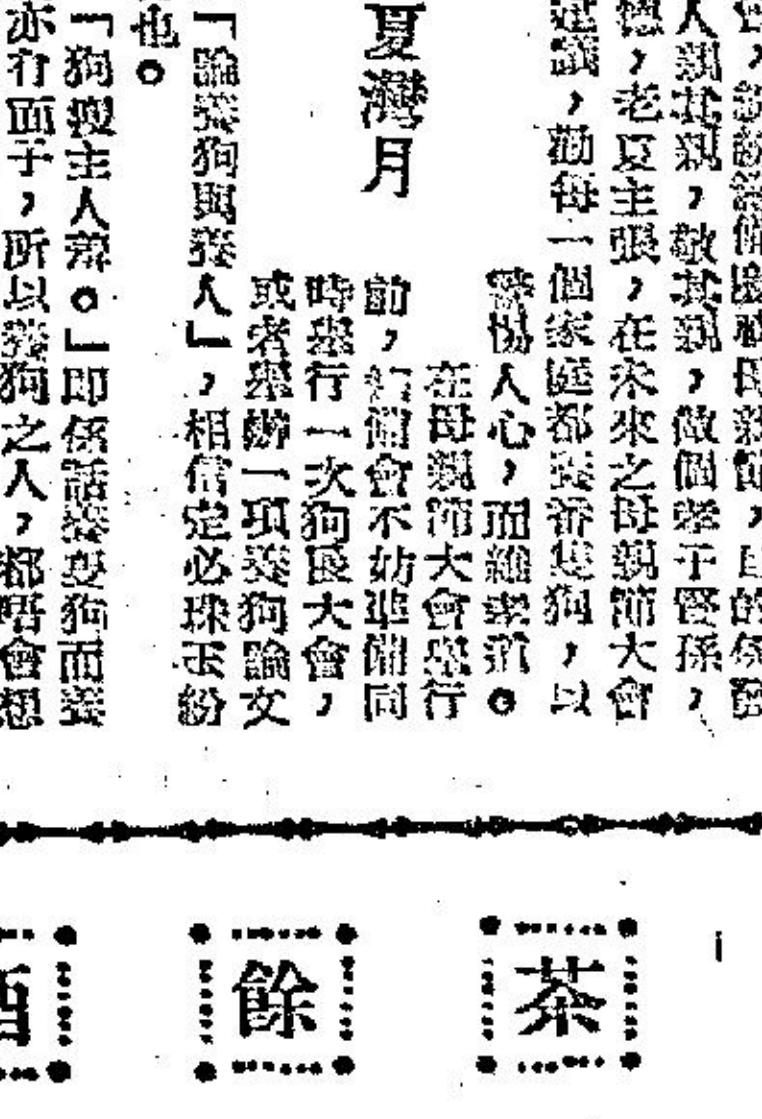 會，籌備慶祝母親節，目的係發
人親其親，敬其親，做個孝子賢孫，
德，老夏主張，在未來之母親節大會
建議，勸每一個家庭都養番隻狗，以
警惕人心，而維孝道。
在母親節大會舉行
前，籌備會不妨準備同
時舉行一次狗展大會，
或者舉辦一項養狗論文
夏灣月
「論養狗與養人」，相信定必珠玉紛
也。
「狗瘦主人羞。」即係話養隻狗而養
亦冇面子，所以養狗之人，都唔會想
茶
餘
酒